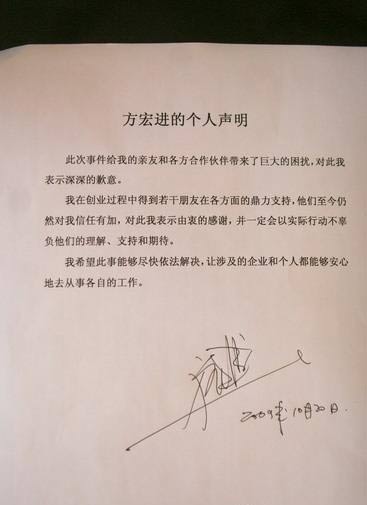 方宏进的个人声明
此次事件给我的亲友和各方合作伙伴带来了巨大的困扰，对此我
表示深深的歉意。
我在创业过程中得到若干朋友在各方面的鼎力支持，他们至今仍
然对我信任有加，对此我表示由衷的感谢，并一定会以实际行动不辜
负他们的理解、支持和期待。
我希望此事能够尽快依法解决，让涉及的企业和个人都能够安心
地去从事各自的工作。
2009年10月20日.